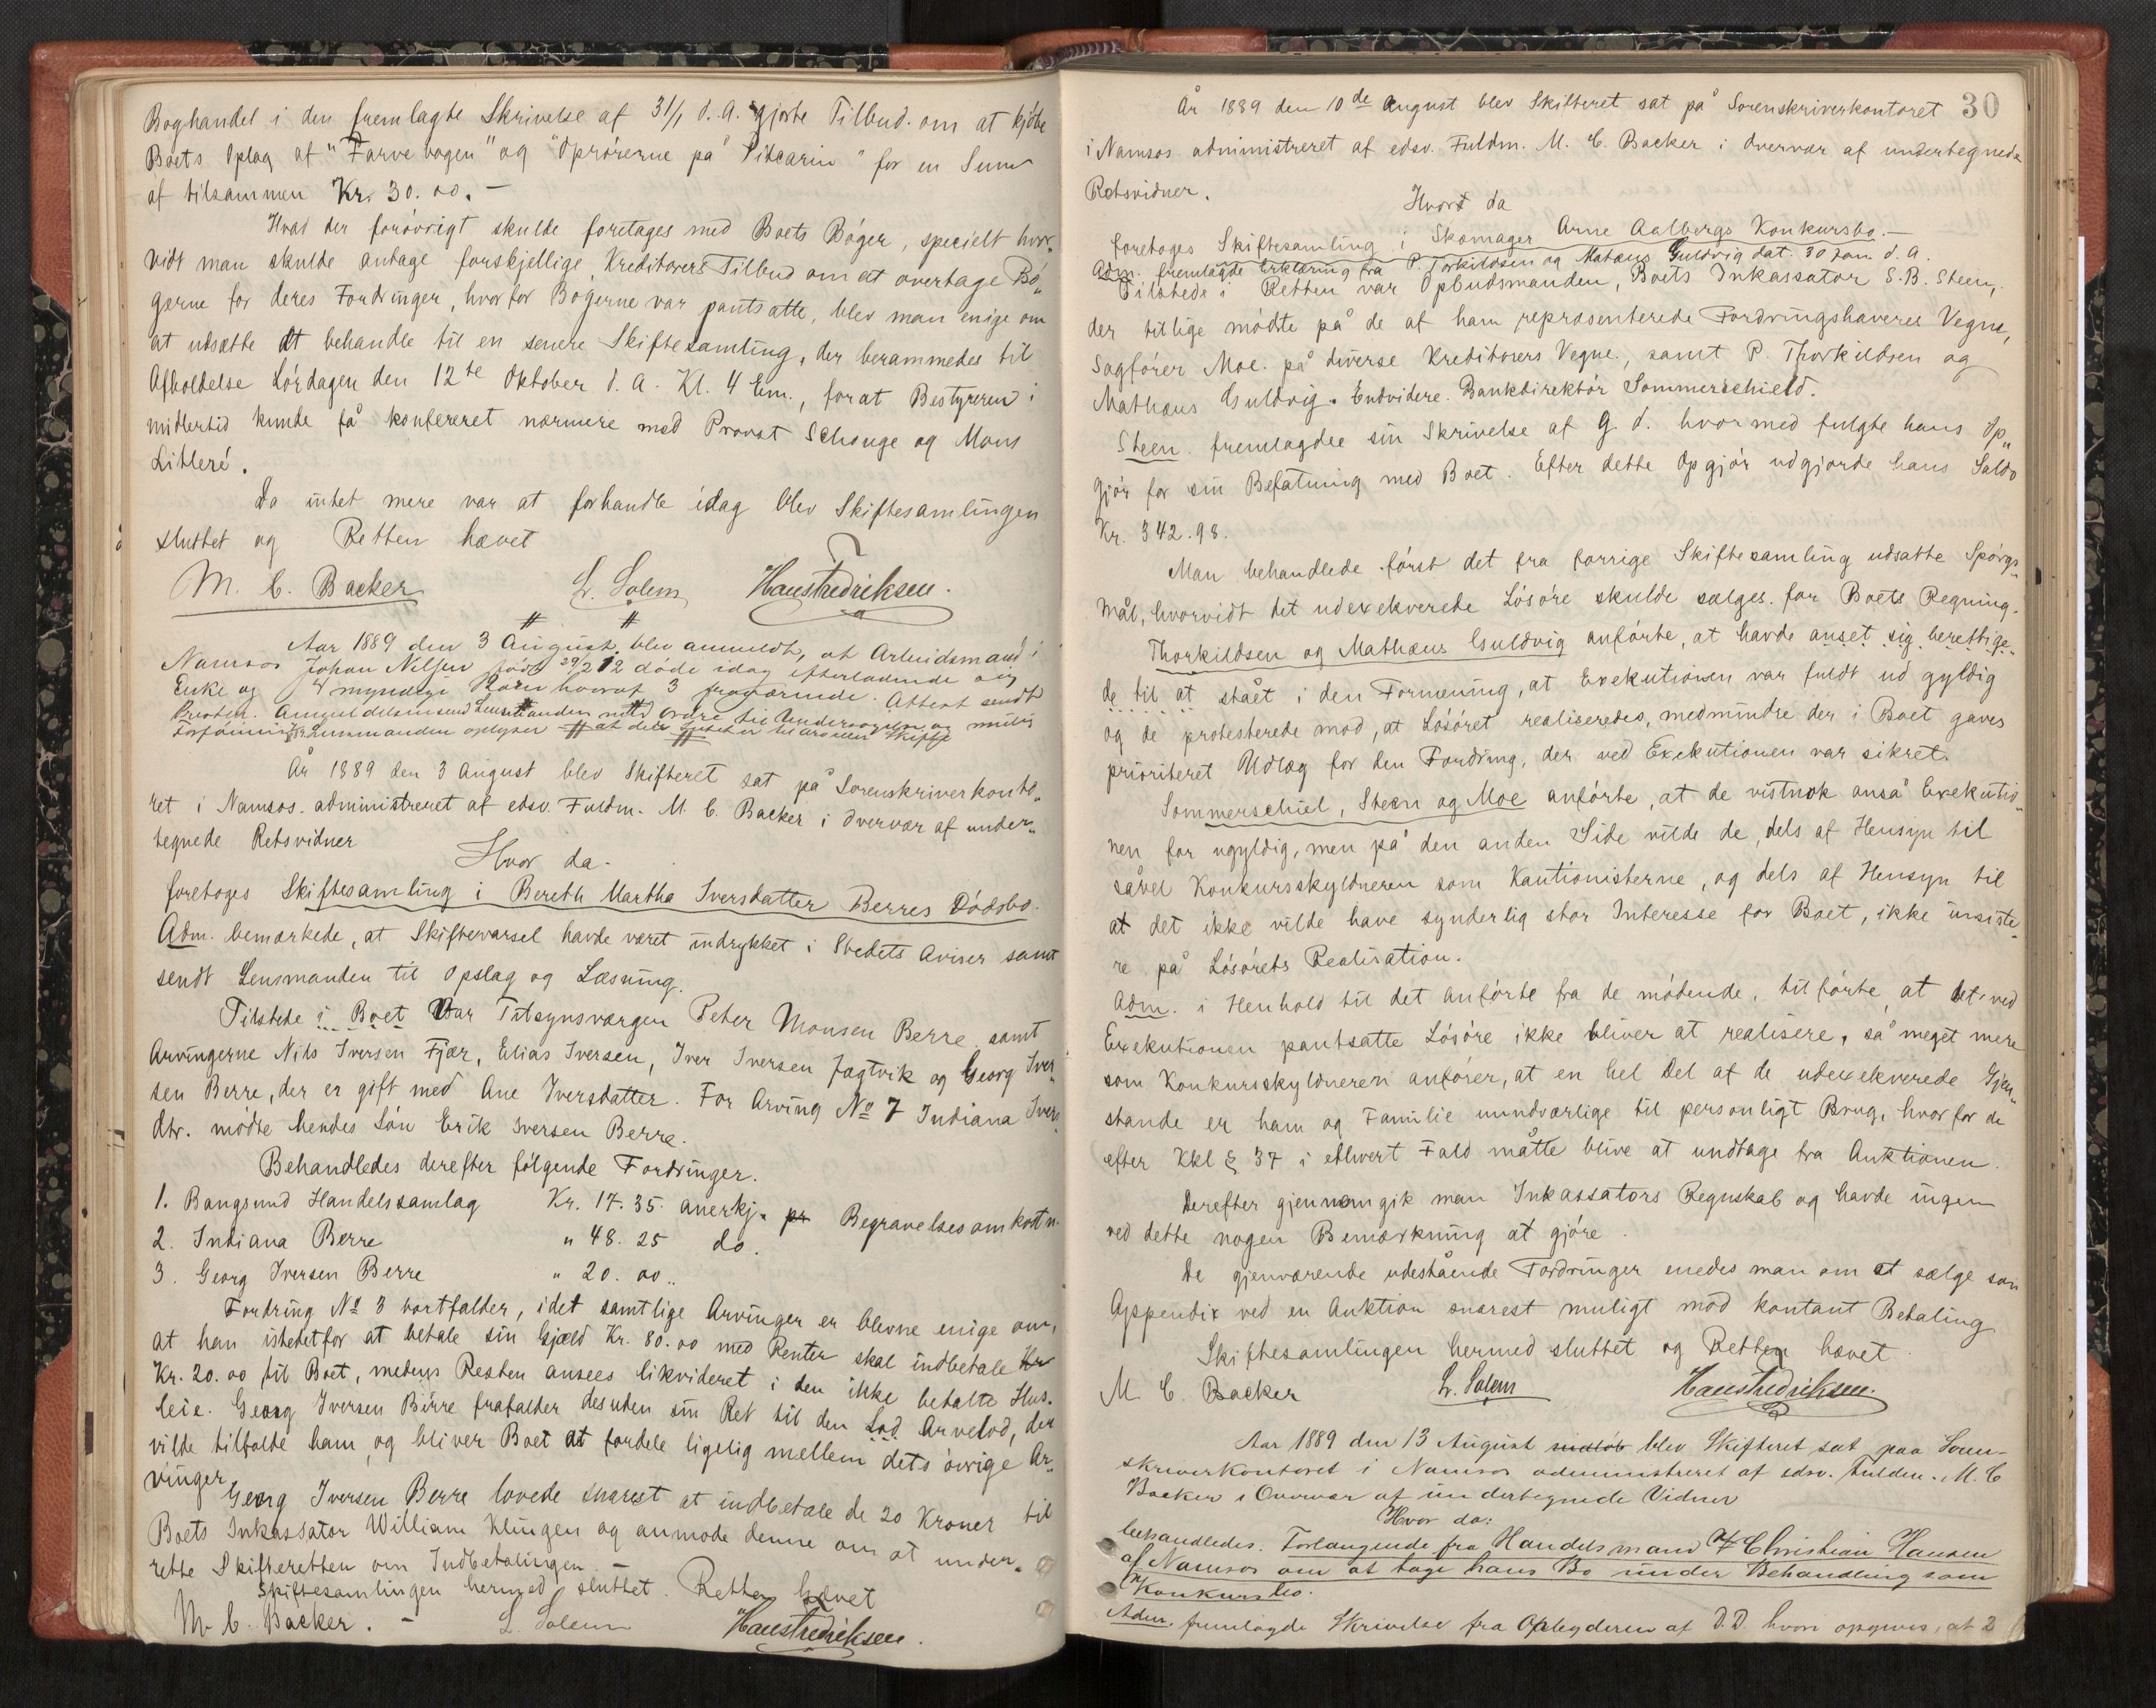 Boghandel i den fremlagte Skrivelse af 31/1 d. A. gjorte Tilbud om at kjöbe
Boets Oplag af "Farvebogen" og "Oprörerne på Pitcarin" for en Sum
af tilsammen Kr. 30.00.—
Hvad der forövrigt skulde foretages med Boets Böger, specielt hvor„
vidt man skulde antage forskjellige Kreditorers Tilbud om at overtage Bö„
gerne for deres Fordringer, hvorfor Bögerne var pantsatte, blev man enige om
at udsætte at behandle til en senere Skiftesamling, der berammedes til
Afholdelse Lördagen den 12te Oktober d. A. Kl. 4 Em., forat Bestyreren i
midlertid kunde få konfereret nærmere med Provst Schonge og Mons
Litleré.
Da intet mere var at forhandle idag blev Skiftesamlingen
sluttet og Retten hævet
M. C. Backer L. Solem Hans Fredriksen.
Aar 1889 den 3 August blev anmeldt, at Arbeidsmand i
Namsos Johan Nilsen född 29/2 12 döde idag efterladende sig
Enke og 4 myndige Börn hvoraf 3 fraværende. Attest sendt
Presten. Anmeldelsen sendt Lensmanden med Ordre til Undersögelse og
Lensmanden oplyser at der Intet er at Skifte
År 1889 den 3 August blev Skifteret sat på Sorenskriverkonto„
ret i Namsos administreret af edsv. Fuldm. M. C. Backer i Overvær af under„
tegnede Retsvidner
Hvor da
foretoges Skiftesamling i Bereth Martha Iversdatter Berres Dödsbo.
Adm. bemærkede, at Skiftevarsel havde været indrykket i Stedets Aviser samt
sendt Lensmanden til Opslag og Læsning.
Tilstede i Boet var Tilsynsværgen Peter Monsen Berre samt
Arvingerne Nils Iversen Fjær, Elias Iversen, Iver Iversen Jægtvik og Georg Iver„
sen Berre, der er gift med Ane Iversdatter. For Arving No 7 Indiana Ivers
dtr. mödte hendes Sön Erik Iversen Berre.
Behandledes derefter fölgende Fordringer.
1. Bangsund Handelssamlag Kr. 17.35 anerkj. pr Begravelsesomkostn.
2. Indiana Berre " 48.25 do.
3. Georg Iversen Berre " 20.00„
Fordring No 3 bortfalder, idet samtlige Arvinger er blevne enige om,
at han istedetfor at betale sin Gjæld Kr. 80.00 med Renter skal indbetale Kr
Kr. 20.00 til Boet, medens Resten ansees likvideret i den ikke betalte Hus„
leie. Georg Iversen Berre frafalder desuden sin Ret til den Lod Arvelod, der
vilde tilfalde ham og bliver Boet at fordele ligelig mellem dets övrige Ar„
vinger
Georg Iversen Berre lovede snarest at indbetale de 20 Kroner til
Boets Inkassator William Klingen og anmode denne om at under„
rette Skifteretten om Indbetalingen.—
Skiftesamlingen hermed sluttet. Retten hævet
M. C. Backer. L. Solem Hans Fredriksen.
30
År 1889 den 10de August blev Skifteret sat på Sorenskriverkontoret
i Namsos administreret af edsv. Fuldm. M. C. Backer i Overvær af undertegnede
Retsvidner.
Hvor da
foretoges Skiftesamling i Skomager Arne Aalbergs Konkursbo.—
Adm. fremlagde Erklæring fra P. Torkildsen og Matæus Guldvig dat. 30 Jan. d. A.
Tilstede i Retten var Opbudsmanden, Boets Inkassator S. B. Steen,
der tillige mödte på de af ham repræsenterede Fordringshaveres Vegne,
Sagförer Moe på diverse Kreditorers Vegne, samt P. Thorkildsen og
Mathæus Guldvig. Endvidere Bankdirektör Sommerschield.
Steen fremlagde sin Skrivelse af G. d. hvormed fulgte hans Op„
gjör for sin Befatning med Boet. Efter dette Opgjör udgjorde hans Saldo
Kr. 342.98.
Man behandlede först det fra forrige Skiftesamling udsatte Spörgs„
mål, hvorvidt det udexekverede Lösöre skulde sælges for Boets Regning.
Thorkildsen og Mathæus Guldvig anförte, at havde anset sig berettige„
de til at stået i den Formening, at Exekutionen var fuldt ud gyldig
og de protesterede mod, at Lösöret realiseredes, medmindre der i Boet gaves
prioriteret Udlæg for den Fordring, der ved Exekutionen var sikret.
Sommerschiel, Steen og Moe anförte, at de vistnok anså Exekutio„
nen for ugyldig, men på den anden Side vilde de, dels af Hensyn til
såvel Konkursskyldneren som Kautionisterne, og dels af Hensyn til
at det ikke vilde have synderlig stor Interesse for Boet, ikke insiste„
re på Lösörets Realisation.
Adm. i Henhold til det anförte fra de mödende, tilförte at det ved
Exekutionen pantsatte Lösöre ikke bliver at realisere, så meget mere
som Konkursskyldneren anförer, at en hel Del af de udexekverede Gjen„
stande er ham og Familie uundværlige til personligt Brug, hvorfor de
efter Kkl § 37 i ethvert Fald måtte blive at undtage fra Auktionen.
Derefter gjennemgik man Inkassators Regnskab og havde ingen
ved dette nogen Bemærkning at gjöre.
De gjenværende udestående Fordringer enedes man om at sælge som
Appendix ved en Auktion snarest muligt mod kontant Betaling
Skiftesamlingen hermed sluttet og Retten hævet.
M. C. Backer L. Solem Hans Fredriksen.
Aar 1889 den 13 August blev Skifteret sat paa Soren-
skriverkontoret i Namsos administreret af edsv. Fuldm. M. C
Backer i Overvær af undertegnede Vidner
Hvor da:
behandledes: Forlangende fra Handelsmand Christian Hansen
af Namsos om at tage hans Bo under Behandling som
Konkursbo.
Adm. fremlagde Skrivelse fra Opbyderen af D. D. hvori opgives, at 2